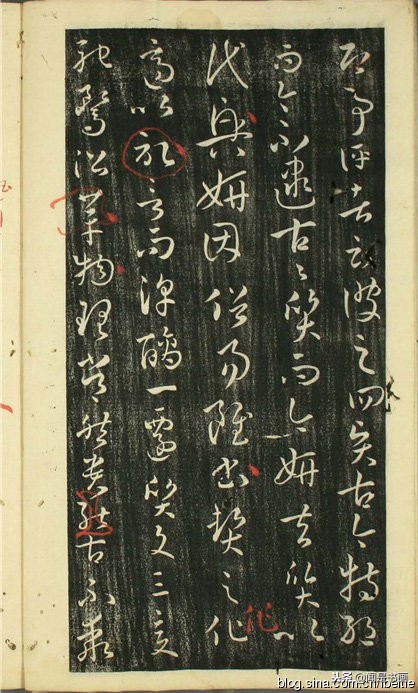 即事評者云彼之四賢古今特絕
而今不逮古々質而今妍夫質以
代興妍因俗易雖書契之作
適以記言而淳醨一遷質文三變
馳騖沿革物理常然貴能古不乖
作